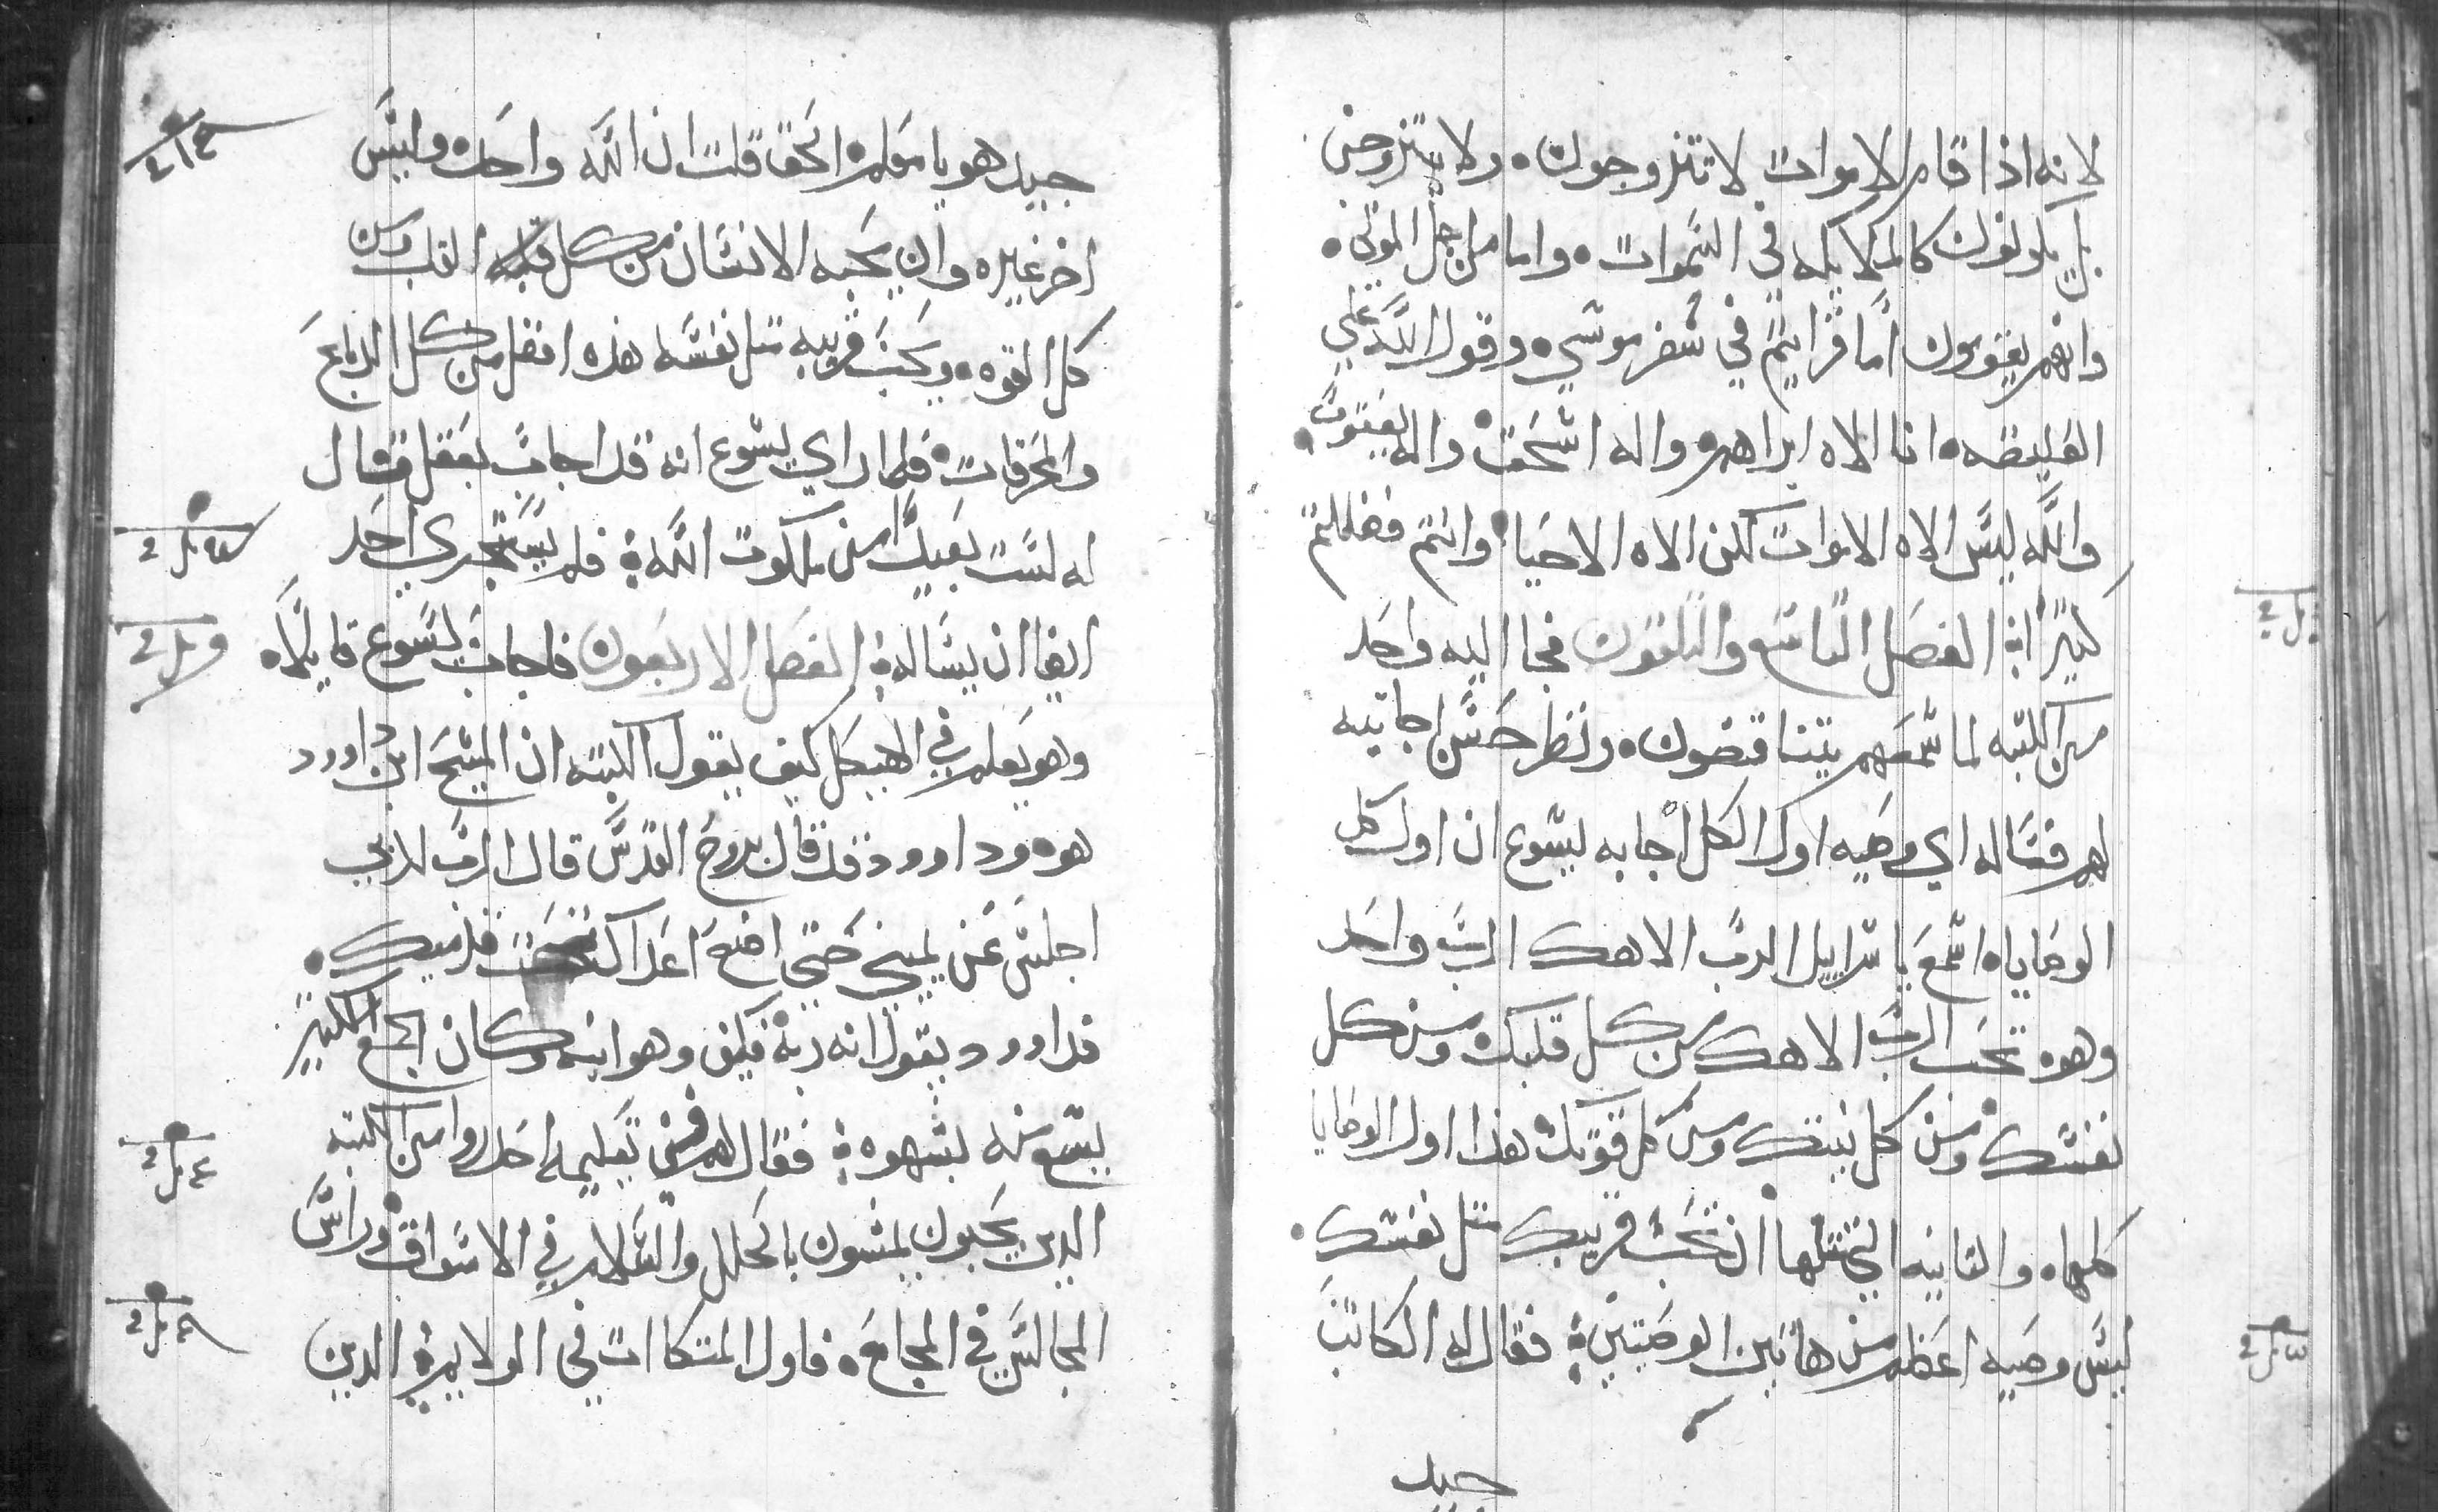 لانه اذا قام الاموات لا تتزوجون ولا يتزوجن
بل يكونون كالملايكه في السموات واما من اجل الموتي
وانهم يقومون اما قراتم في سفر موسي وقول الله علي
العليقه انا الاه ابراهيم واله اسحق واله يعقوب
والله ليس الاه الاموات لكن الاه الاحيا وانتم فضللتم
كثيرا الفصل التاسع والثلثون فجا اليه واحد
من الكتبه لما سمعهم يتناقضون ونظر حسن اجابته
لهم فساله اي وصيه اول الكل اجابه يسوع ان اول كل
الوصايا اسمع ياسراييل الرب الاهك الرب واحد
وهوه تحب الرب الاهك من كل قلبك ومن كل
نفسك ومن كل نيتك ومن كل قوتك هذا اول الوصايا
كلها والثانيه التي مثلها ان تحب قريبك مثل نفسك
ليس وصيه اعظم من هاتين الوصيتين فقال له الكاتب
جيد
جيد هو يا معلم الحق قلت ان الله واحد وليس
اخر غيره وان يحبه الانسان من كل القلب ومن
كل القوه ويحب قريبه مثل نفسه هذه افضل من كل الدبايح
والمحرقات فلما راي يسوع انه قد اجاب بعقل فقال
له لست بعيدا من ملكوت الله فلم يستجري احد
ايضا ان يساله الفصل الاربعون فاجاب يسوع قايلا
وهو يعلم في الهيكل كيف يقول الكتبه ان المسيح ابن داوود
هوه وداوود قد قال بروح القدس قال الرب لربي
اجلس عن يميني حتي اضع اعداك تحت قدميك
فداوود يقول انه ربه فكيف وهو ابنه وكان الجمع الكثير
يسمع منه بشهوه فقال لهم في تعليمه احذروا من الكتبه
الدين يحبون يمشون بالحلل والسلام في الاسواق وراس
المجالس في المجامع فاول المتكاات في الولايم الدين